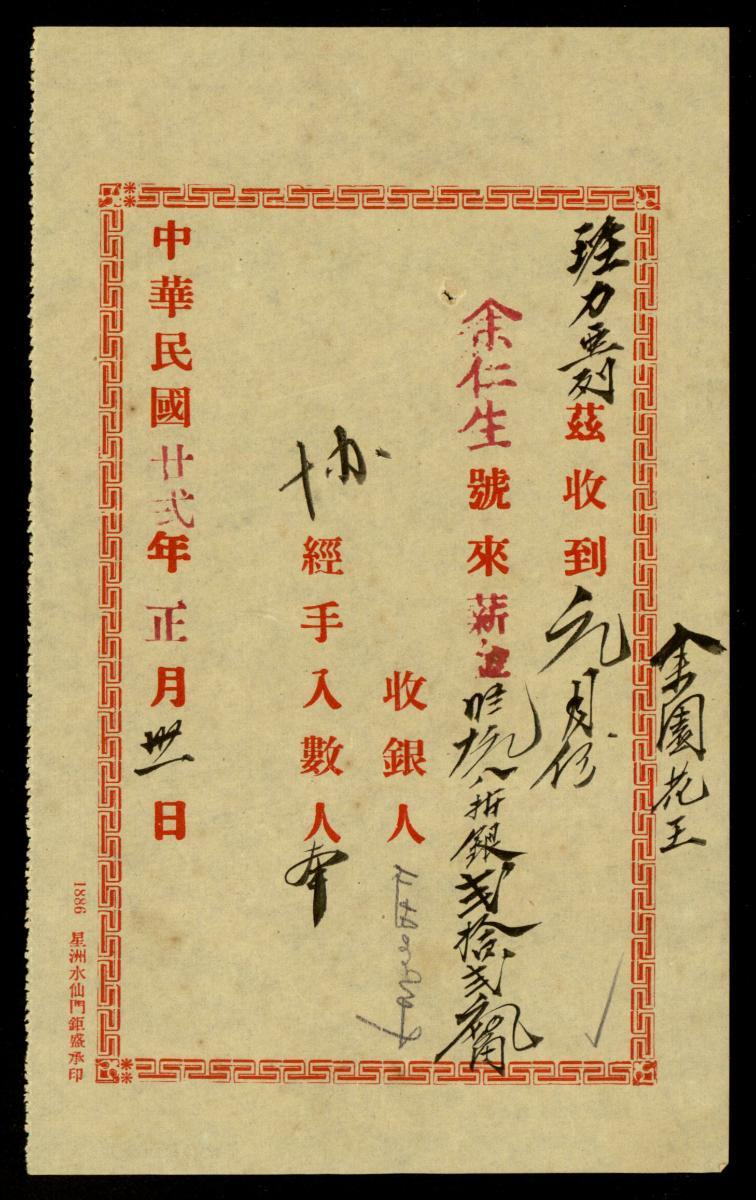 余園花王
力亞列茲收到元月份
余仁生號來薪金八折銀弍拾弍
收銀人
協經手入數人
中華民國廿弍年正月卅一日
1886 星洲水仙門鉅盛承印